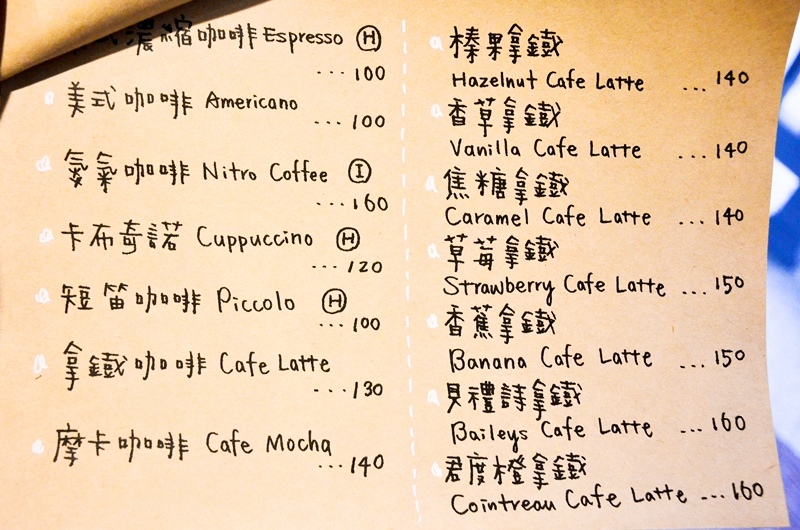 濃縮咖啡 Espresso Ⓗ
... 100
美式咖啡 Americano
... 100
氮氣咖啡 Nitro Coffee Ⓘ
... 160
卡布奇諾 Cuppuccino Ⓗ
... 120
短笛咖啡 Piccolo Ⓗ
... 100
拿鐵咖啡 Cafe Latte
... 130
摩卡咖啡 Cafe Mocha
... 140
榛果拿鐵
Hazelnut Cafe Latte ... 140
香草拿鐵
Vanilla Cafe Latte ... 140
焦糖拿鐵
Caramel Cafe Latte ... 140
草莓拿鐵
Strawberry Cafe Latte ... 150
香蕉拿鐵
Banana Cafe Latte ... 150
貝禮詩拿鐵
Baileys Cafe Latte ... 160
君度橙拿鐵
Cointreau Cafe Latte ... 160